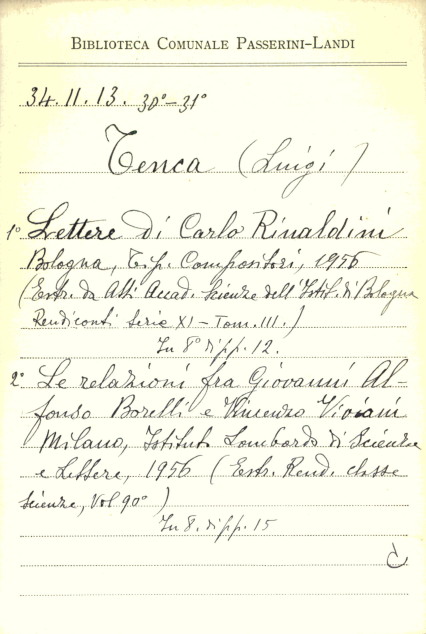 BIBLIOTECA COMUNALE PASSERINI-LANDI
34.11.13. 30°-31°
Tenca (Luigi)
1° Lettere di Carlo Rinaldini
Bologna, Tip. Compositori, 1956
(Estr. da Atti Accad. Scienze dell'Istit. di Bologna
Rendiconti Serie XI - Tom. III.)
In 8° di pp. 12.
2° Le relazioni fra Giovanni Al-
fonso Borelli e Vincenzo Viviani
Milano, Istituto Lombardo di Scienze
e Lettere, 1956 (Estr. Rend. classe
Scienze, Vol 90°)
In 8. di pp. 15